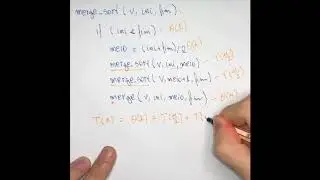 merge_sort (v, ini, fim):
if (ini < fim) - Θ(1)
meio = (ini+fim)/2 Θ(1)
merge_sort (v, ini, meio) - T(n/2)
merge_sort (v, meio+1, fim) - T(n/2)
merge (v, ini, meio, fim) - Θ(n)
T(n) = Θ(1) + T(n/2) + T(